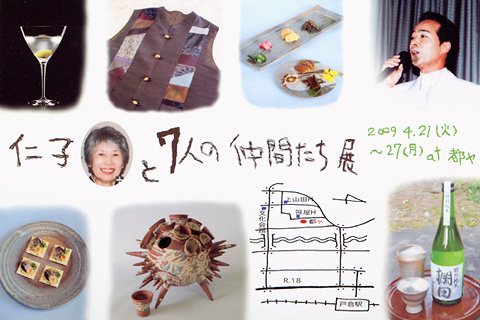 仁子 と 7人の 仲間たち 展
2009 4.21(火)
～27(月) at 都ヤ
上山田H
笹屋H
都ヤ
文化会館
R.18
戸倉駅
棚田